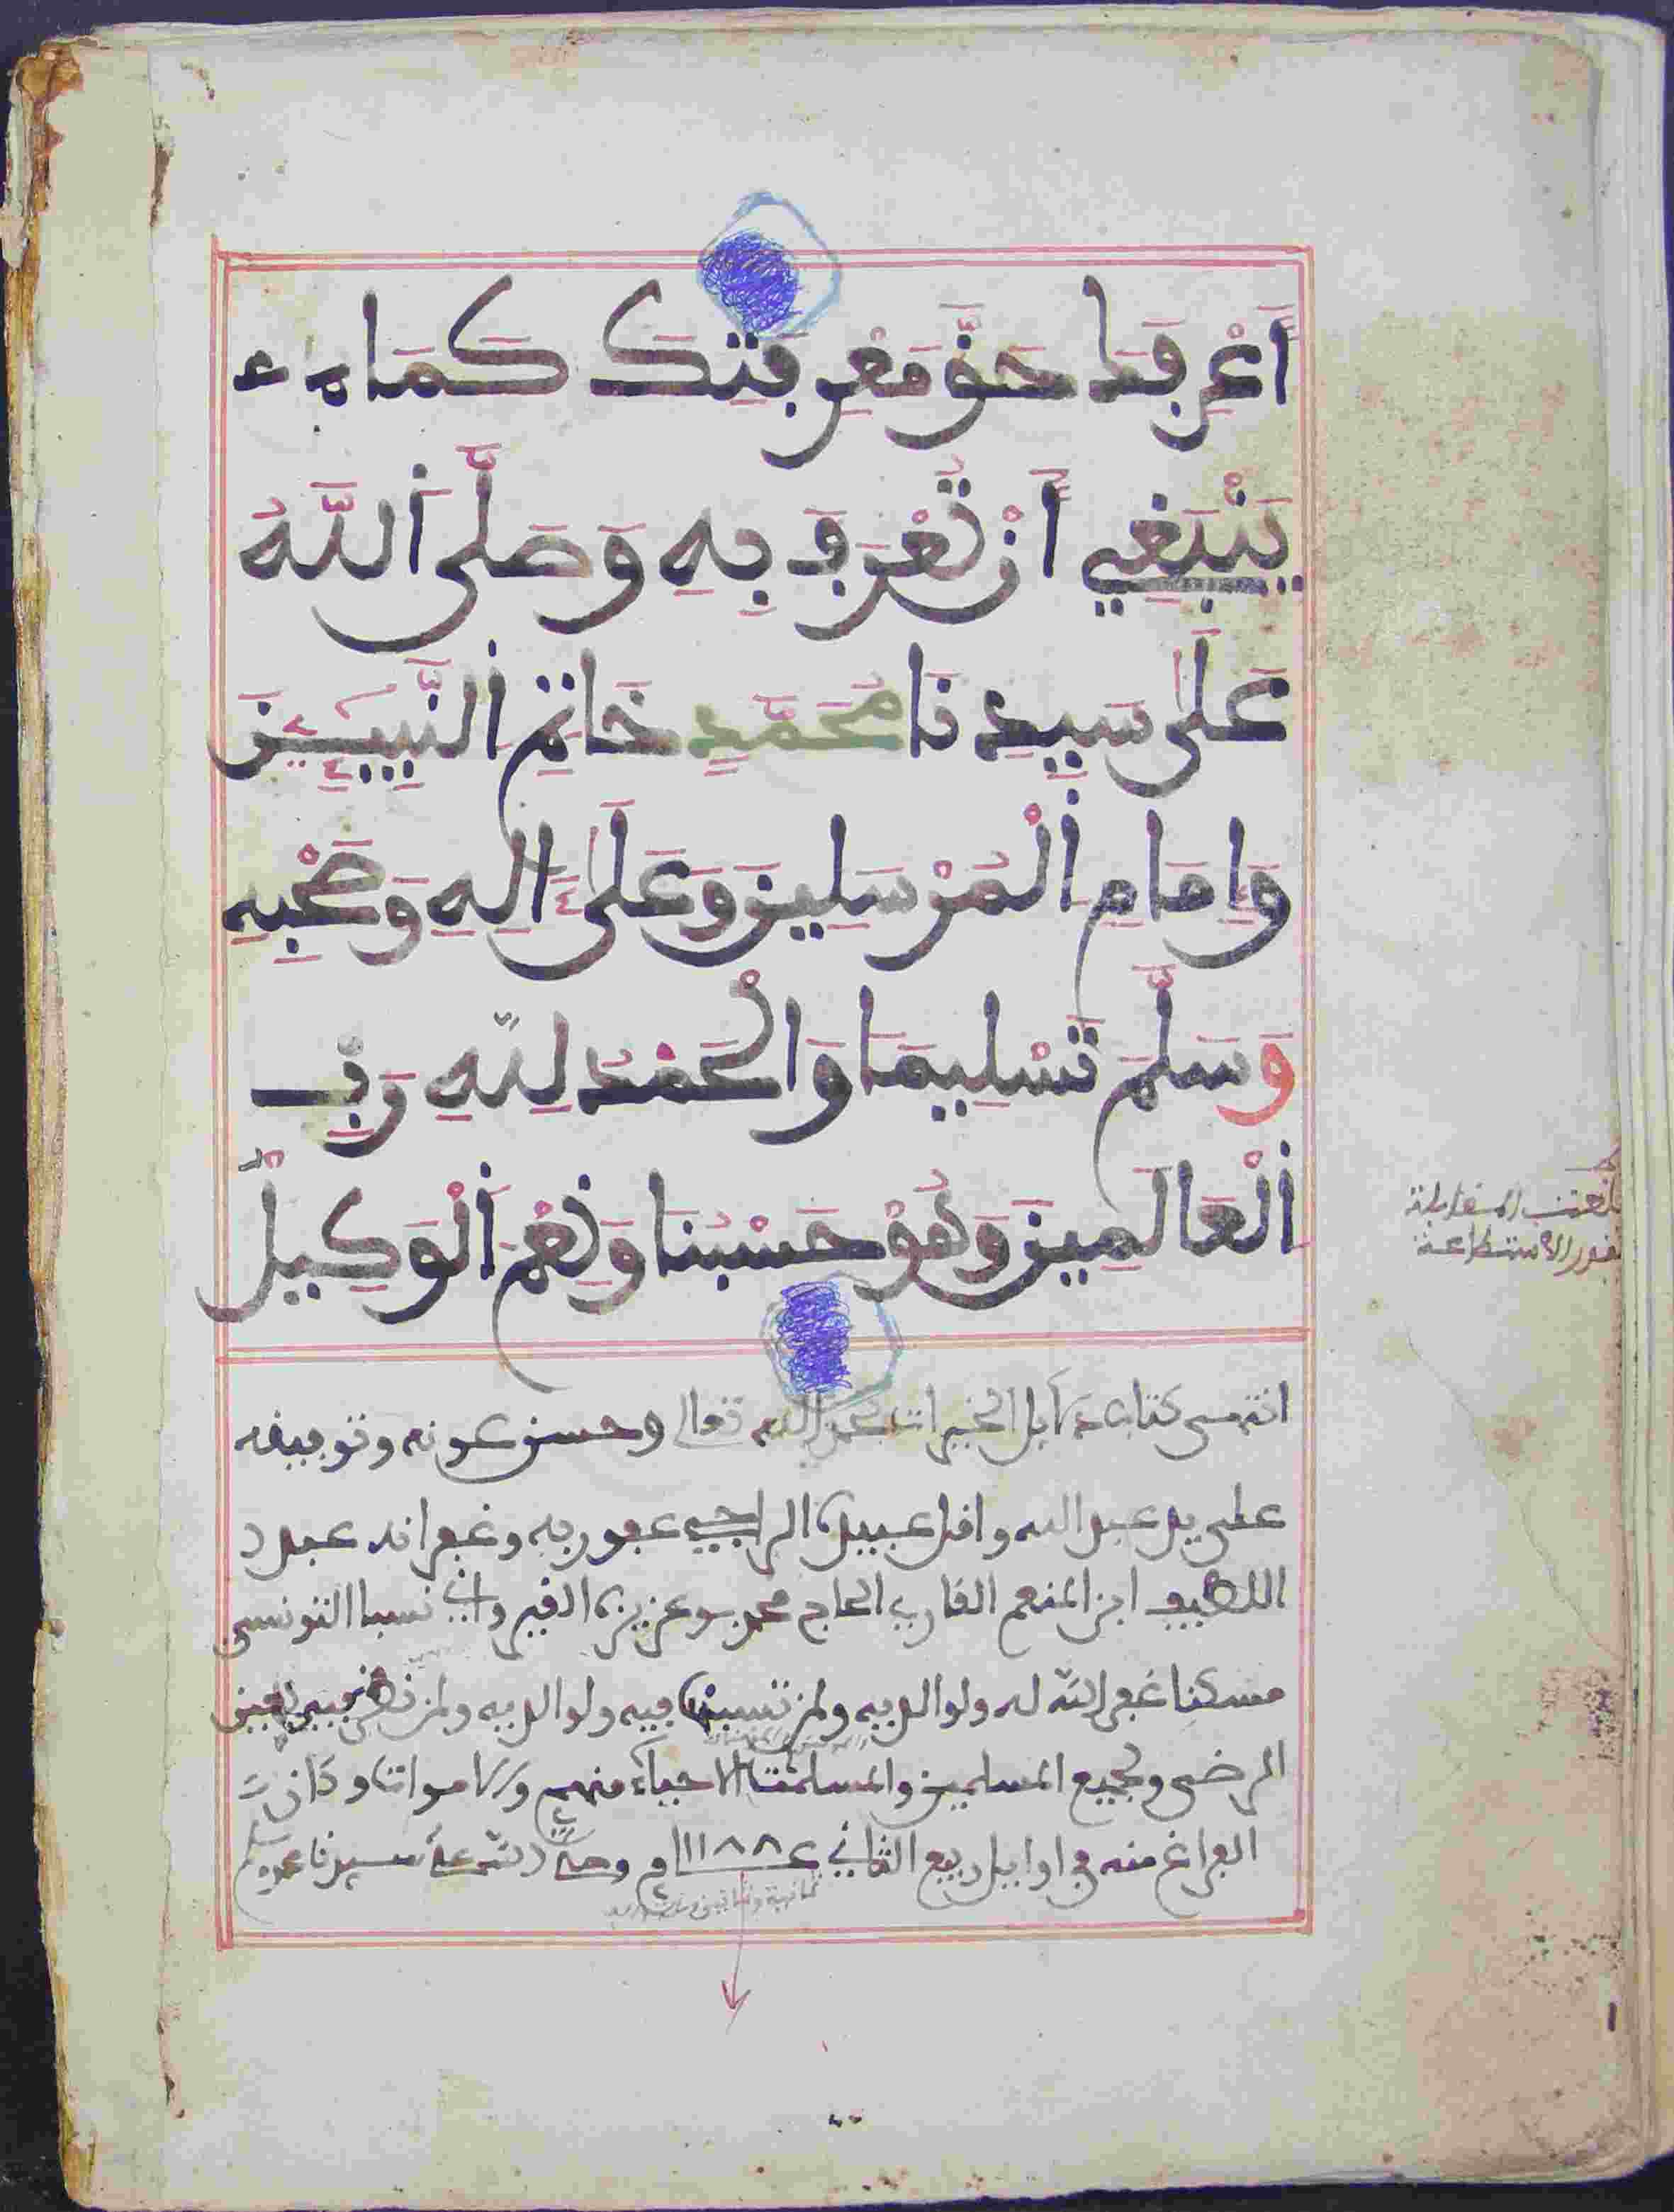 أَعْرِفَهَا حَقَّ مَعْرِفَتِكَ كَمَا
يَنْبَغِي أَنْ تُعْرَفَ بِهِ وَصَلَّى اللَّهُ
عَلَى سَيِّدِنَا مُحَمَّدٍ خَاتِمِ النَّبِيئِينَ
وَإِمَامِ الْمُرْسَلِينَ وَعَلَى آلِهِ وَصَحْبِهِ
وَسَلَّمَ تَسْلِيمًا وَالْحَمْدُ لِلَّهِ رَبِّ
الْعَالَمِينَ وَهُوَ حَسْبُنَا وَنِعْمَ الْوَكِيلُ
انتهى كتاب دلايل الخيرات بحمد الله تعالى وحسن عونه وتوفيقه
على يد عبد الله واقل عبيده الراجي عفو ربه وغفرانه عبد
اللطيف ابن المنعم القاري الحاج محمد بوعزيز القيرواني نسبا التونسي
مسكنا غفر الله له ولوالديه ولمن تسبب فيه ولوالديه ولمن نظر فيه بعين
الرضى ولجميع المسلمين والمسلمات الاحياء منهم والاموات وكان
الفراغ منه في اوايل ربيع الثاني عـ ١١٨٨ـام وصلى الله على سيدنا محمد
ثمانية وثمانين
بلغت المقابلة
بقدر الاستطاعة